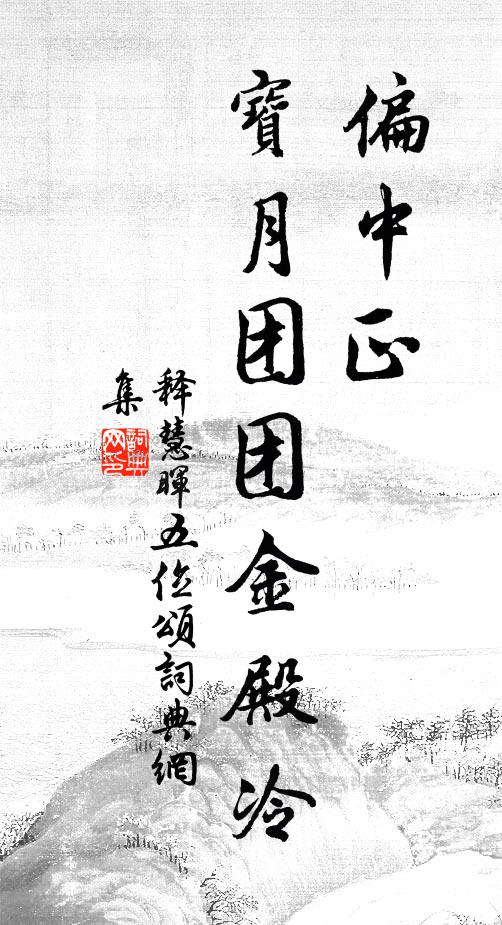 偏中正
寶月团团金殿冷
释慧暉五位頌詞典網
集
詞典
网印